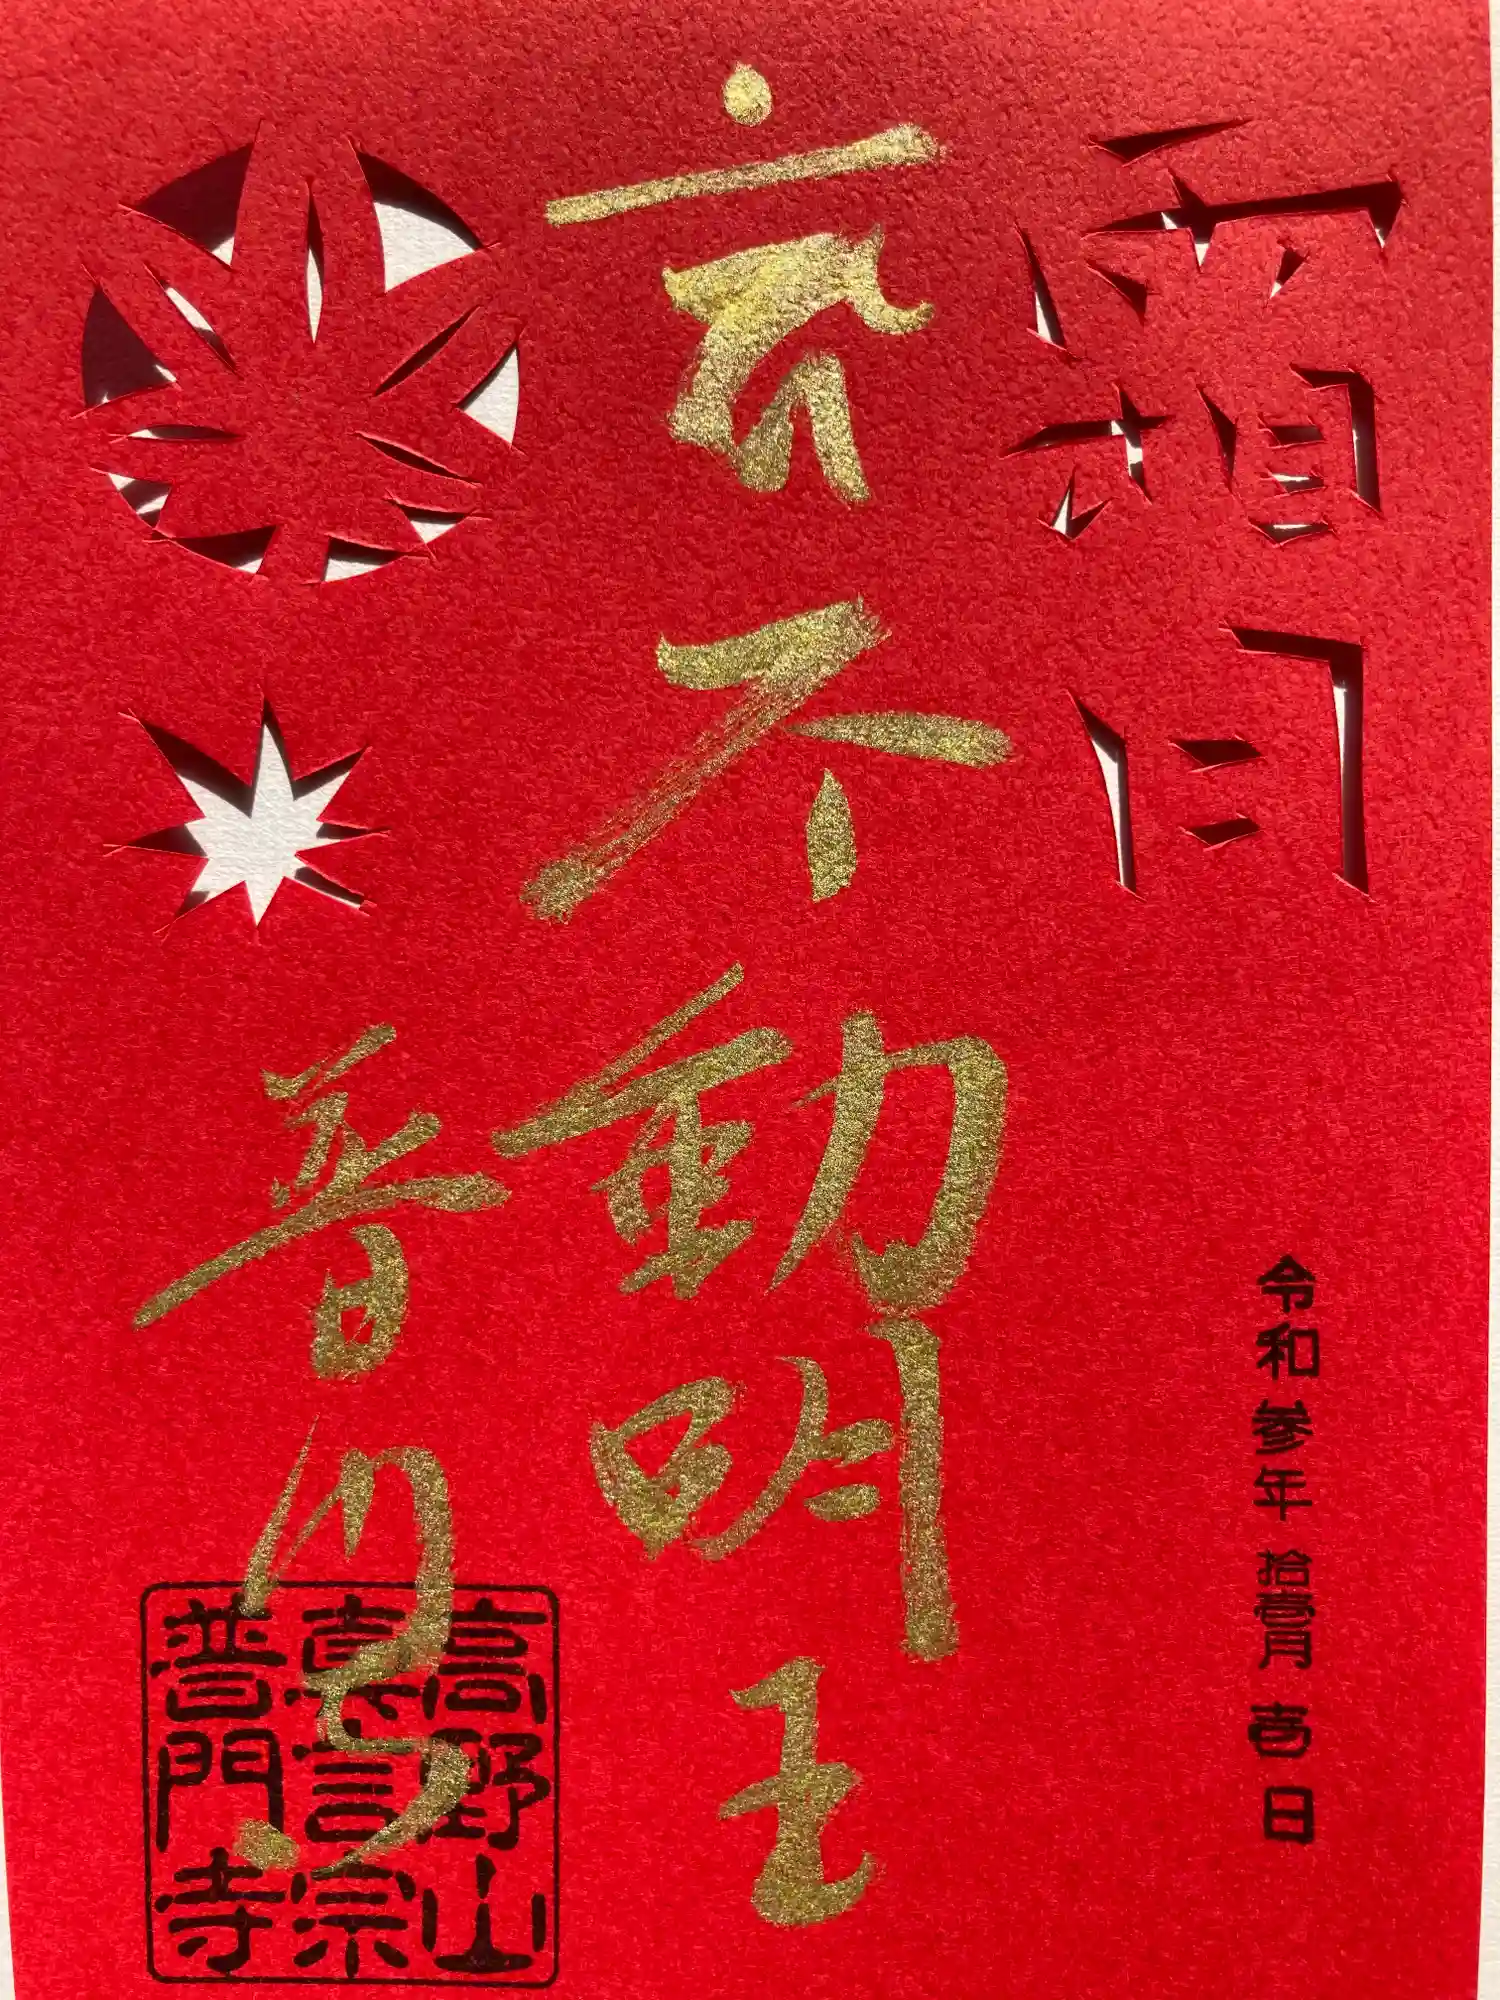 霜月
令和参年拾壱月壱日
不動明王
普門寺
高野山
真言宗
普門寺